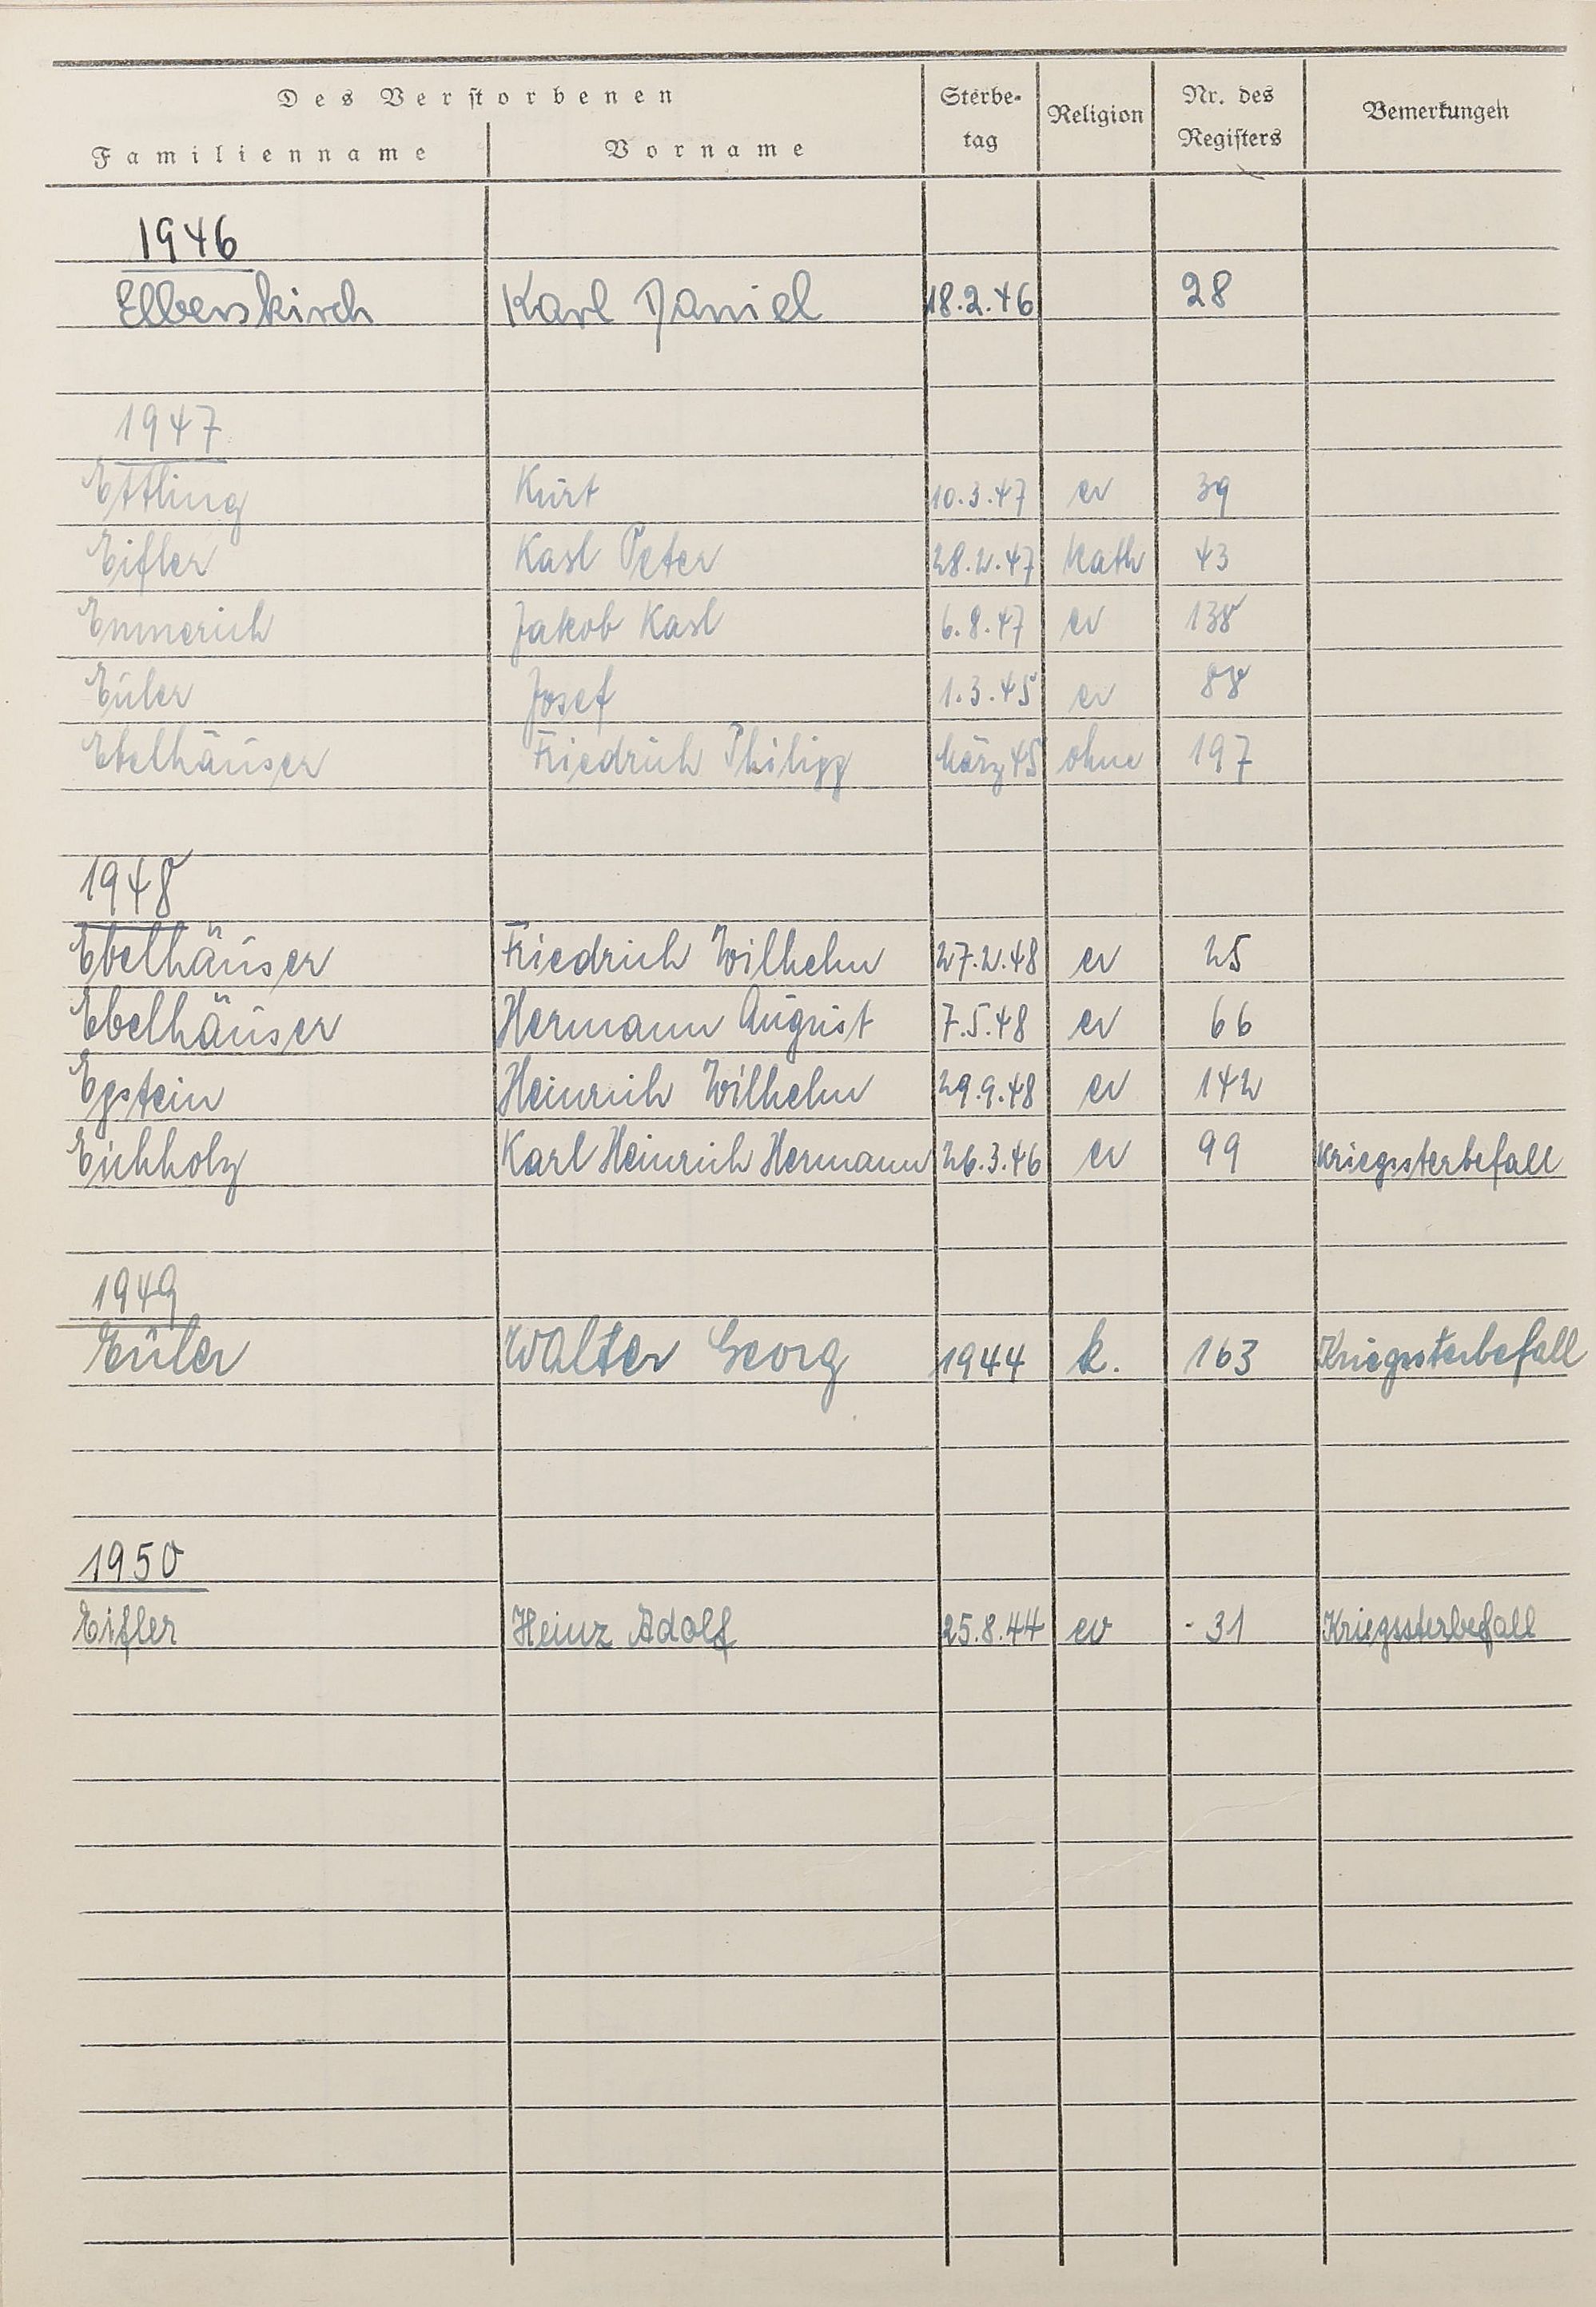 Des Verstorbenen
Familienname Vorname Sterbe-tag Religion Nr. des Registers Bemerkungen
1946
Elberskirch Karl Daniel 18.2.46 28
1947
Ettling Kurt 10.3.47 ev 39
Eifler Karl Peter 28.2.47 kath 43
Emmerich Jakob Karl 6.8.47 ev 138
Euler Josef 1.3.45 ev 88
Ebelhäuser Friedrich Philipp März 45 ohne 197
1948
Ebelhäuser Friedrich Wilhelm 27.2.48 ev 25
Ebelhäuser Hermann August 7.5.48 ev 66
Epstein Heinrich Wilhelm 29.9.48 ev 142
Eichholz Karl Heinrich Hermann 26.3.46 ev 99 Kriegssterbefall
1949
Euler Walter Georg 1944 k. 163 Kriegssterbefall
1950
Eifler Heinz Adolf 25.8.44 ev - 31 Kriegssterbefall